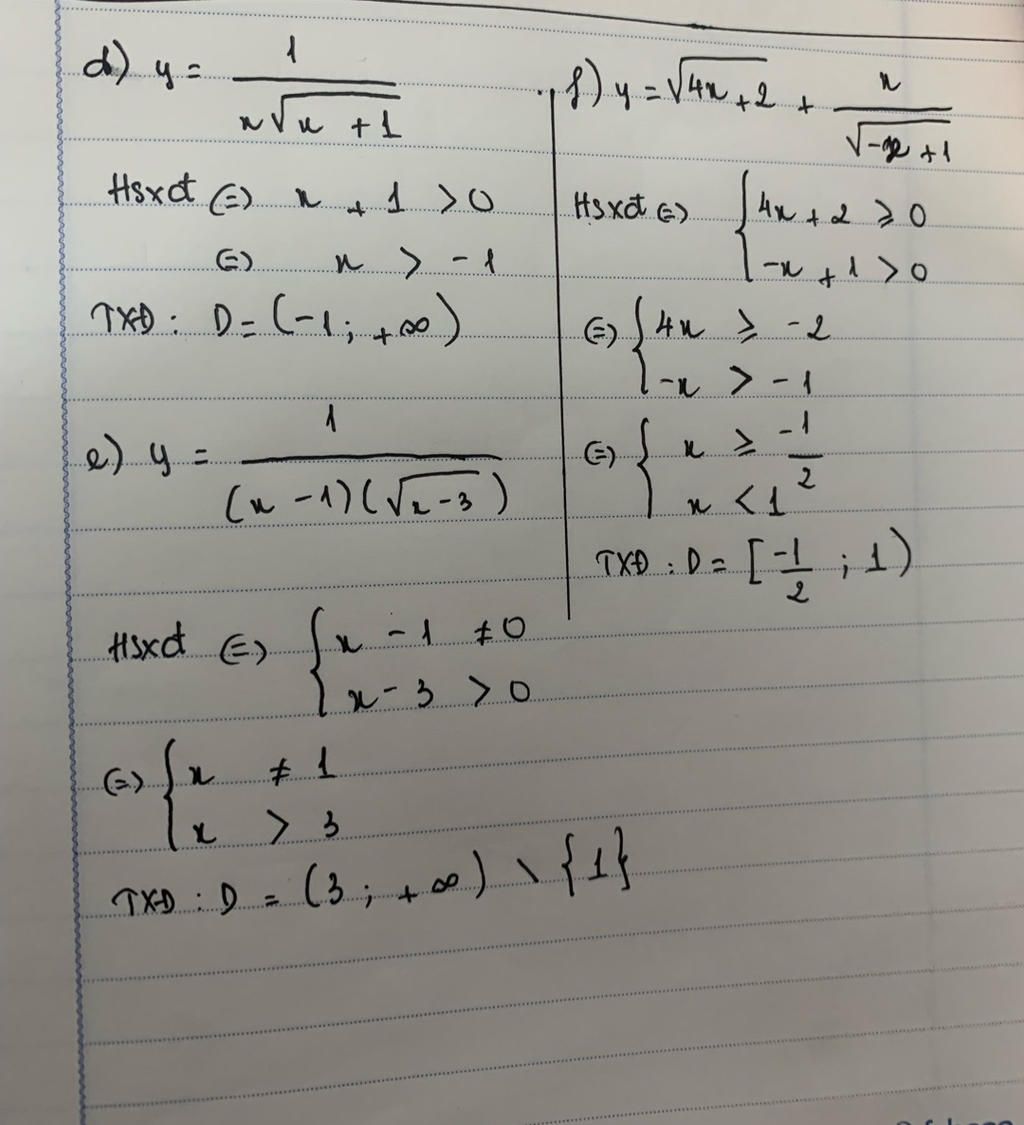 d) y = 1/(x√(x + 1))
Hsxđ ⇔ x + 1 > 0
⇔ x > -1
TXĐ : D = (-1 ; +∞)
e) y = 1/((x - 1)(√(x - 3)))
Hsxđ ⇔ { x - 1 ≠ 0
x - 3 > 0
⇔ { x ≠ 1
x > 3
TXĐ : D = (3 ; +∞) \ {1}
f) y = √(4x + 2) + x/√(-x + 1)
Hsxđ ⇔ { 4x + 2 ≥ 0
-x + 1 > 0
⇔ { 4x ≥ -2
-x > -1
⇔ { x ≥ -1/2
x < 1
TXĐ : D = [-1/2 ; 1)